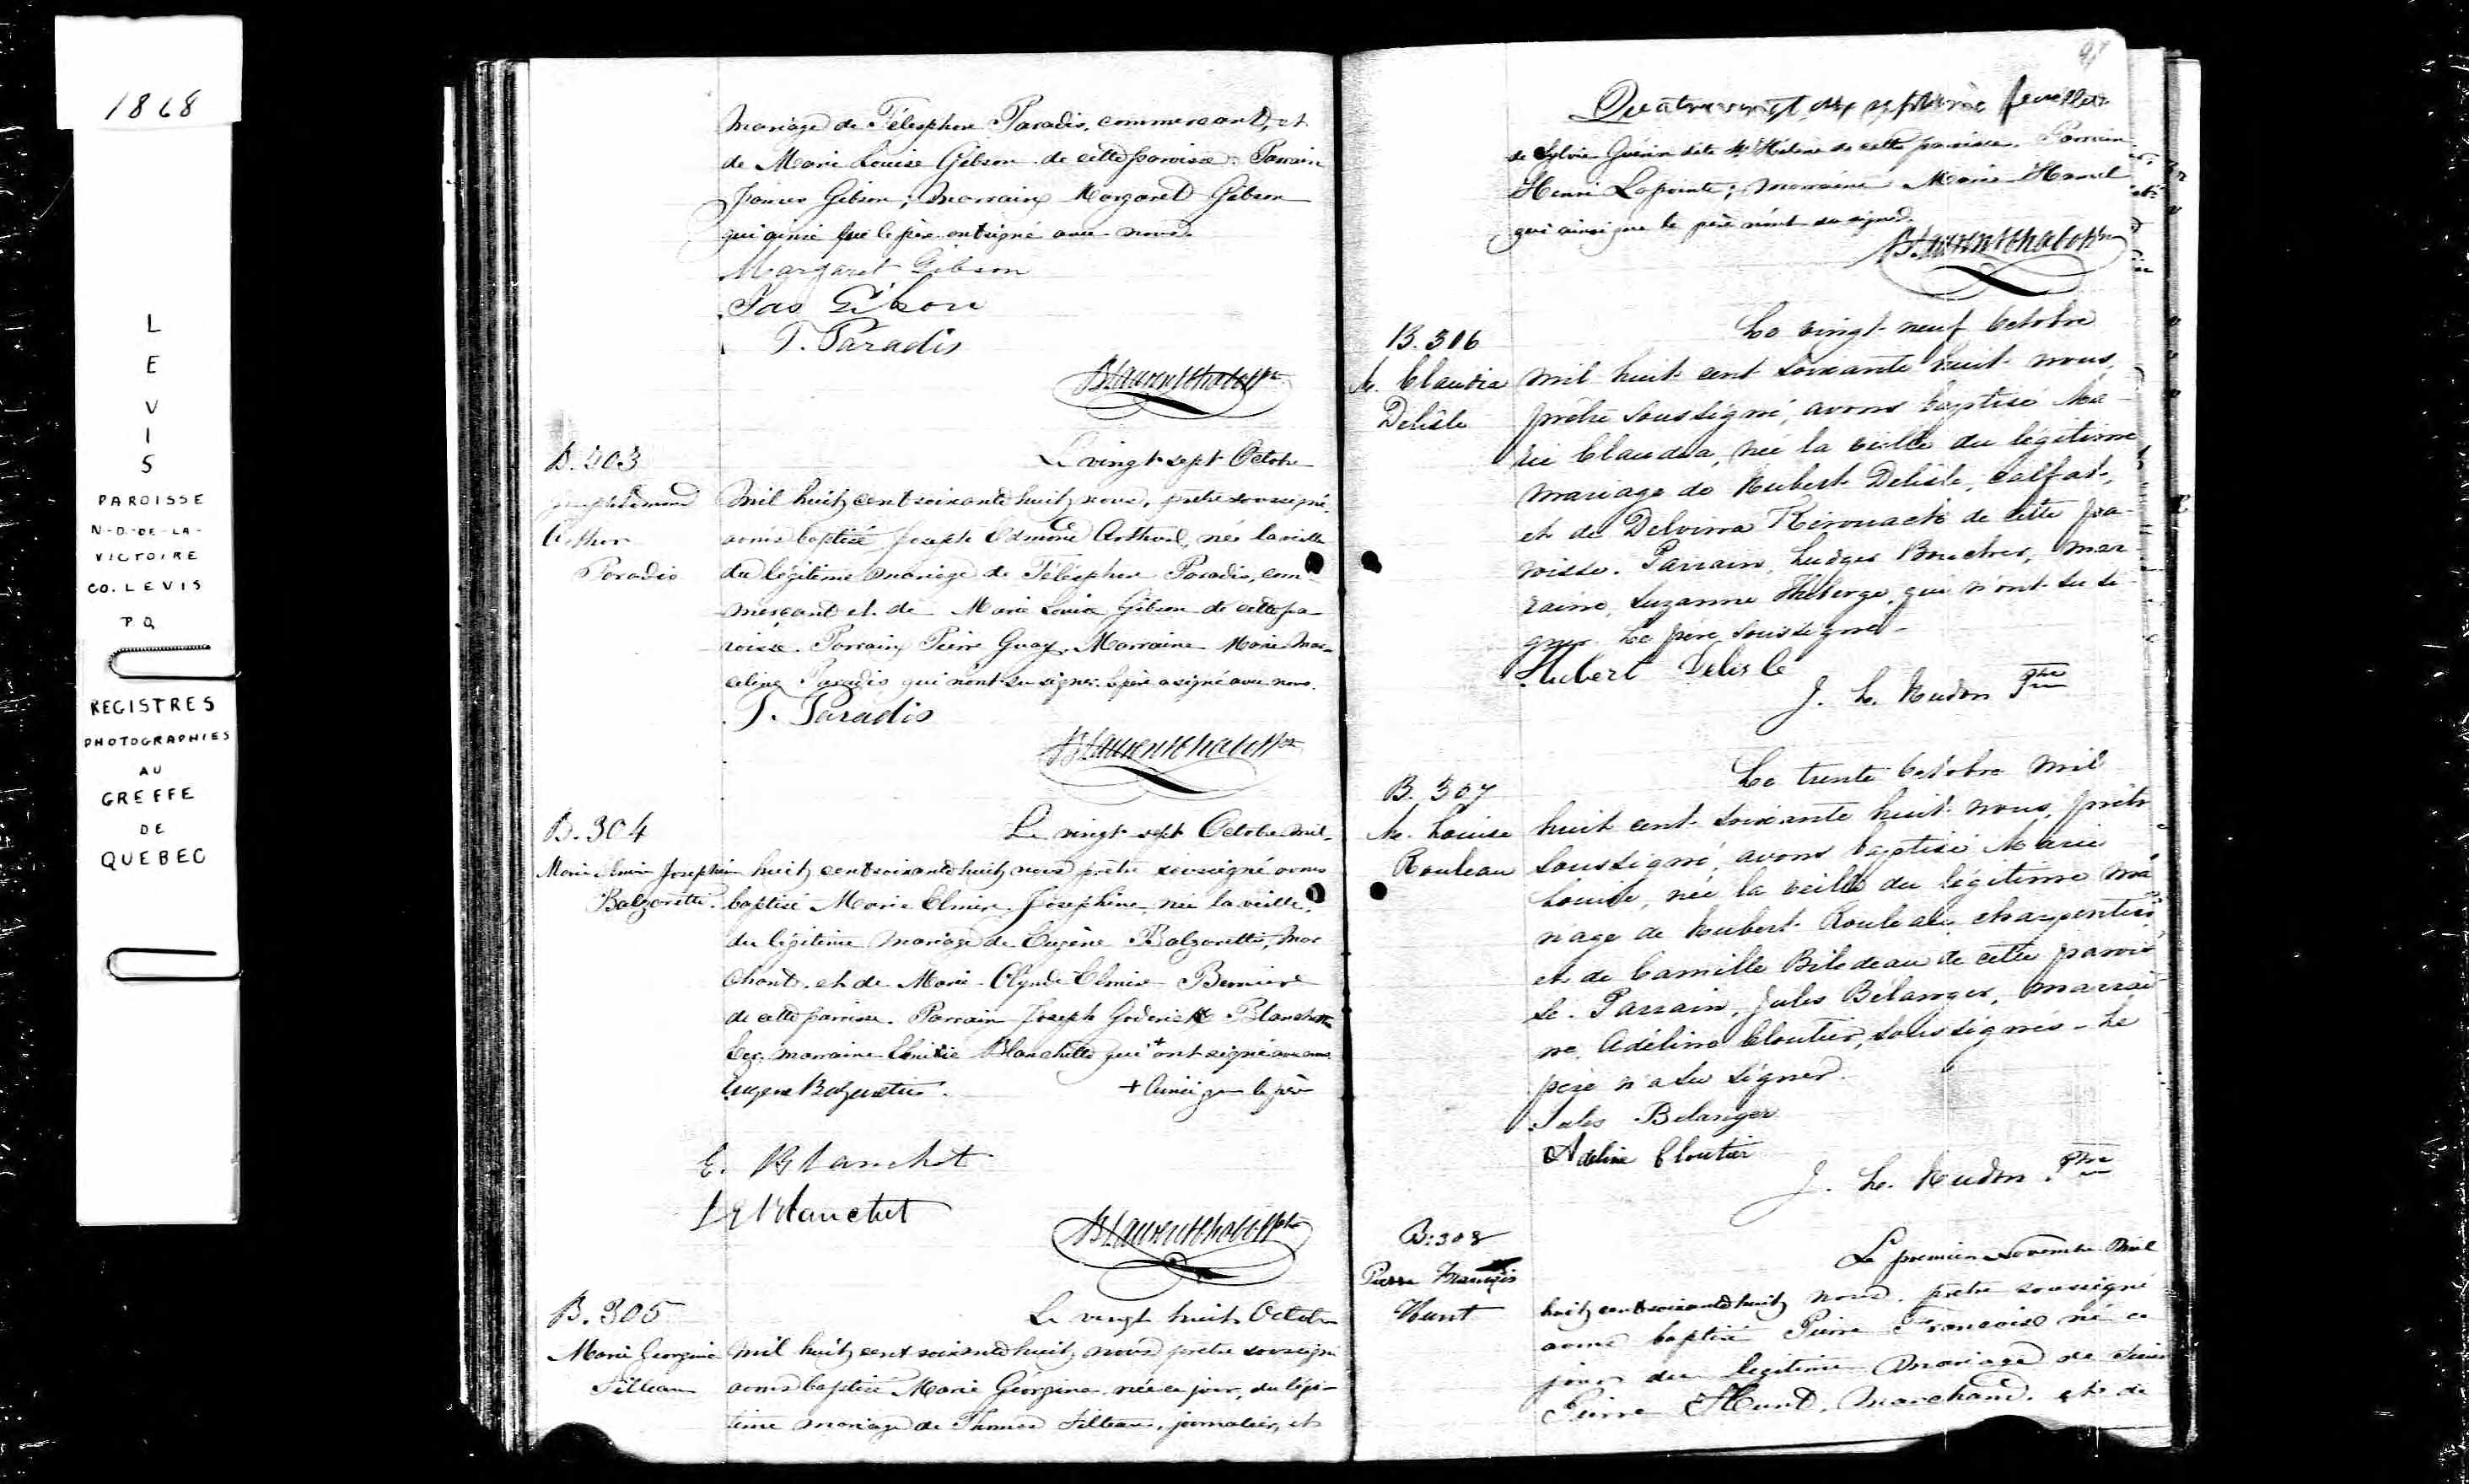 1868
L
E
V
I
S
PAROISSE
N-D-DE-LA-
VICTOIRE
CO. LEVIS
P Q
REGISTRES
PHOTOGRAPHIES
AU
GREFFE
DE
QUEBEC
mariage de Télesphore Paradis, commercant, et
de Marie Louise Gibson de cette paroisse. Parrain
James Gibson; marraine Margaret Gibson
qui ainsi que le père ont signé avec nous.
Margaret Gibson
Jas Gibson
T. Paradis
B. 303
Le vingt-sept Octobre
Joseph Edmond
Arthur
Paradis
mil huit cent soixante huit nous, prêtre soussigné,
avons baptisé Joseph Edmond, né la veille
du légitime mariage de Télesphore Paradis, com-
merçant et de Marie Louise Gibson de cette pa-
roisse. Parrain Pierre Guay, Marraine Marie Mar-
celine Paradis qui n'ont su signer. Le père a signé avec nous.
T. Paradis
B. 304
Le vingt-sept Octobre mil
Marie Elmire Josephine
Balzaretti
huit cent soixante huit nous prêtre soussigné avons
baptisé Marie Elmire Josephine, née la veille,
du légitime mariage de Eugène Balzaretti, mar
chand, et de Marie Elmire Bernier
de cette paroisse. Parrain Joseph Blanchette
marraine Blanchette qui + ont signé avec nous
Eugene Balzaretti.
+ Ainsi que le père
E. Blanchet
Blanchet
B. 305
Le vingt huit Octobre
Marie Georgina
Filteau
mil huit cent soixante huit nous prêtre soussigné
avons baptisé Marie Géorgina, née ce jour, du légi-
time mariage de Thomas Filteau, journalier, et
97
Quatre vingt dix septième feuillet
de Sylvie Guérin dite St Hilaire de cette paroisse. Parrain
Henri Lapointe; marraine Marie Hamel
qui ainsi que le père n'ont su signer.
B. 306
M. Claudia
Delisle
Le vingt-neuf Octobre
mil huit cent soixante huit nous,
prêtre soussigné, avons baptisé Ma-
rie Claudia, née la veille du légitime
mariage de Hubert Delisle, calfat,
et de Delvina Kirouack de cette pa-
roisse. Parrain, Ludger Boucher, mar-
raine, Suzanne Théberge, qui n'ont su si-
gner. Le père soussigné -
Hubert Delisle
J. H. Hudon Ptre
B. 307
M. Louise
Rouleau
Le trente Octobre mil
huit cent soixante huit nous, prêtre
soussigné, avons baptisé Marie
Louise, née la veille du légitime ma
riage de Hubert Rouleau, charpentier,
et de Camille Bilodeau de cette parois
se. Parrain, Jules Belanger, marrai
ne, Adéline Cloutier, soussignés - Le
père n'a su signer.
Jules Belanger
Adeline Cloutier
J. H. Hudon Ptre
B: 308
Pierre François
Hunt
Le premier Novembre mil
huit cent soixante huit nous, prêtre soussigné
avons baptisé Pierre François né ce
jour du légitime mariage de
Pierre Hunt, marchand, et de